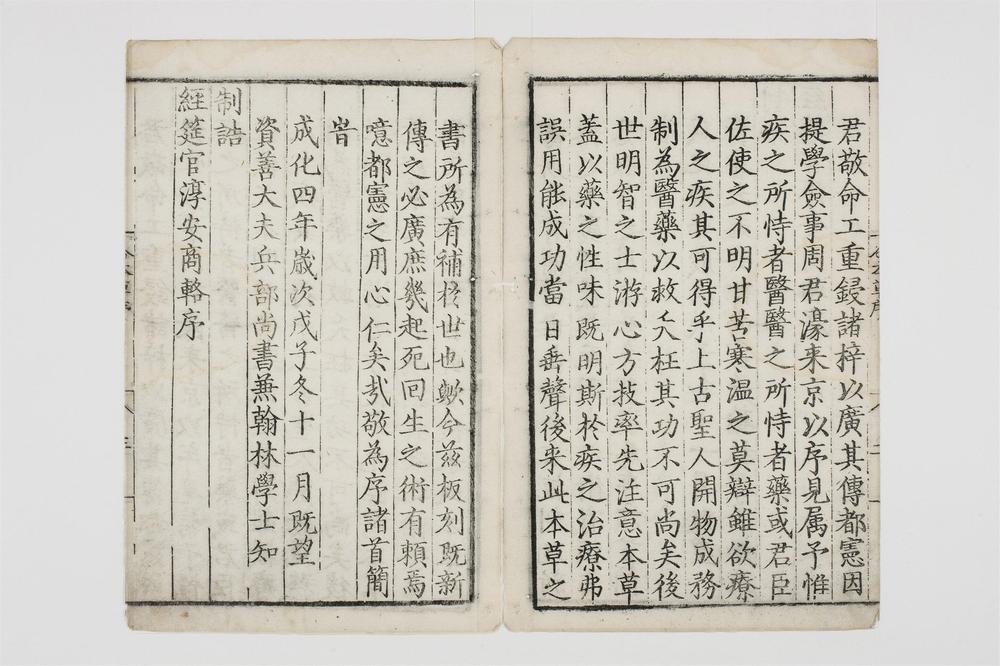 君敬命工重鋟諸梓以廣其傳都憲因
提學僉事周君濠来京以序見属予惟
疾之所恃者醫醫之所恃者藥或君臣
佐使之不明甘苦寒温之莫辯雖欲療
人之疾其可得乎上古聖人開物成務
制為醫藥以救夭枉其功不可尚矣後
世明智之士游心方技率先注意本草
蓋以藥之性味既明斯於疾之治療弗
誤用能成功當日垂聲後来此本草之
書所為有補於世也歟今茲板刻既新
傳之必廣庶幾起死回生之術有賴焉
噫都憲之用心仁矣㢤敬為序諸首簡
旹
成化四年歲次戊子冬十一月既望
資善大夫兵部尚書兼翰林學士知
制誥
經筵官淳安商輅序